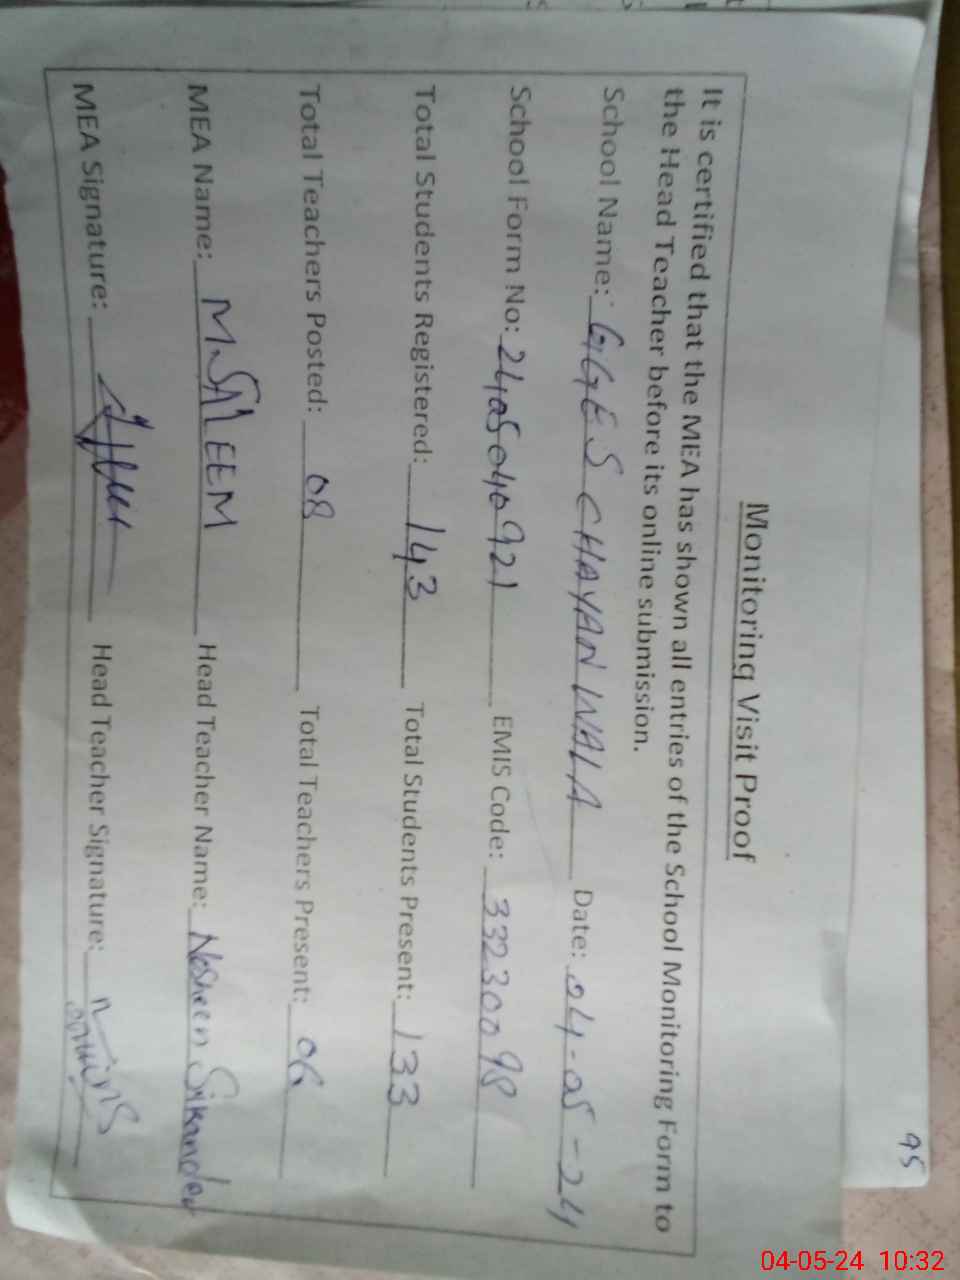 95
Monitoring Visit Proof
It is certified that the MEA has shown all entries of the School Monitoring Form to
the Head Teacher before its online submission.
School Name: GGES CHAYAN WALA Date: 04-05-24
School Form No: 2405040921 EMIS Code: 33230098
Total Students Registered: 143 Total Students Present: 133
Total Teachers Posted: 08 Total Teachers Present: 06
MEA Name: M.SALEEM Head Teacher Name: Nosheen Sikandar
MEA Signature: Head Teacher Signature:
04-05-24 10:32